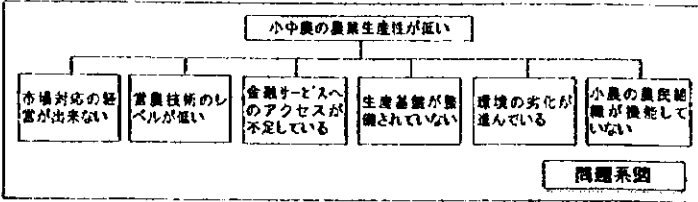 小中農の農業生産性が低い
市場対応の経
営が出来ない
営農技術のレ
ベルが低い
金融サービスへ
のアクセスが
不足している
生産基盤が整
備されていない
環境の劣化が
進んでいる
小農の農民組
織が機能して
いない
問題系図